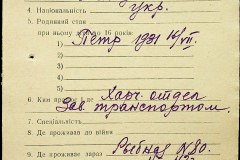 4. Національність укр.
5. Родинний стан
при ньому діти до 16 років:
1) Пётр 1931 16/VII.
2)
3)
4)
5)
6. Хар. отдел
Зав транспортом.
7. Спеціяльність
8. Де проживав до війни
9. Де проживає зараз Рыбная N 20.